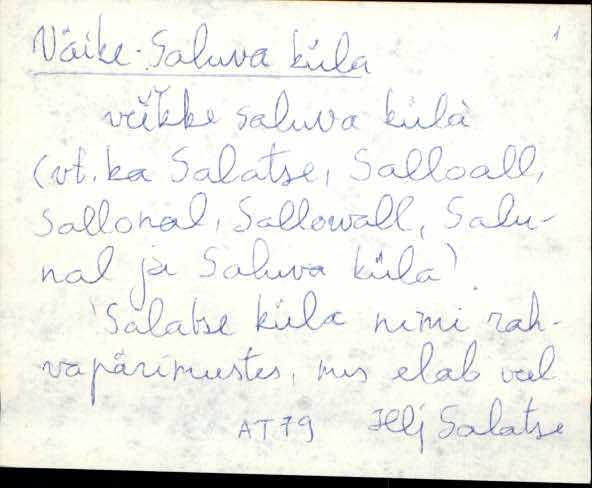 1
Väike-Saluva küla
veikke saluva külà
(vt. ka Salatse, Salloall,
Sallonal, Sallowall, Salu-
nal ja Saluva küla)
'Salatse küla nimi rah-
vapärimustes, mis elab veel
AT79 Hlj Salatse